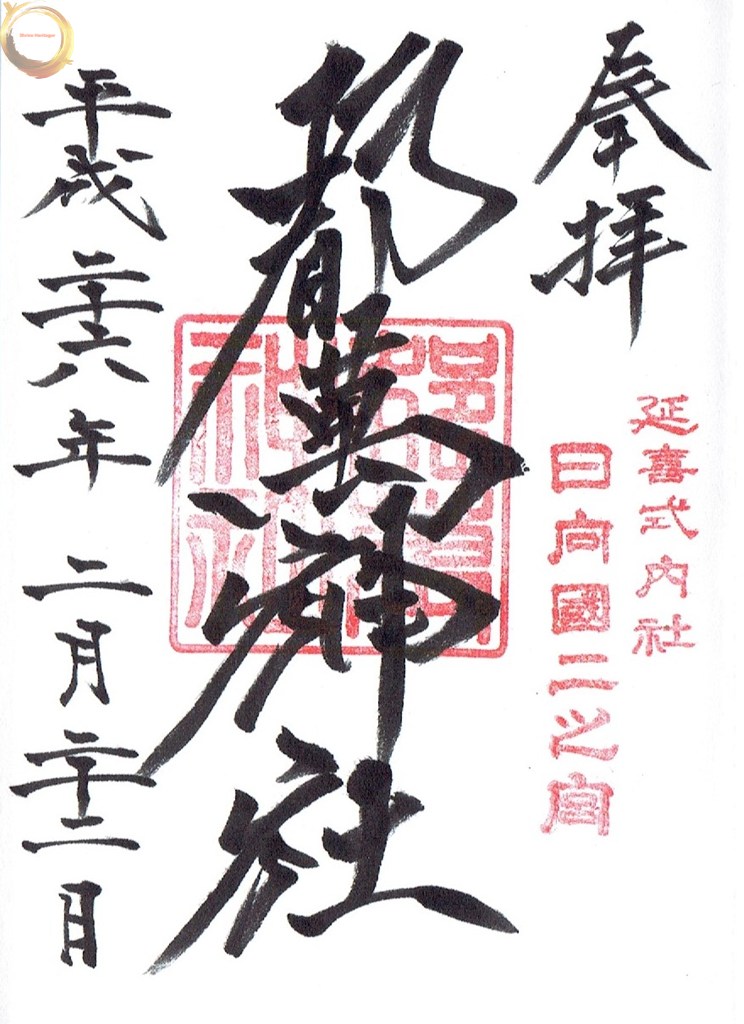 奉拝
延喜式内社
日向國二之宮
都萬神社
平成二十六年 二月二十二日
Shrine Heritager